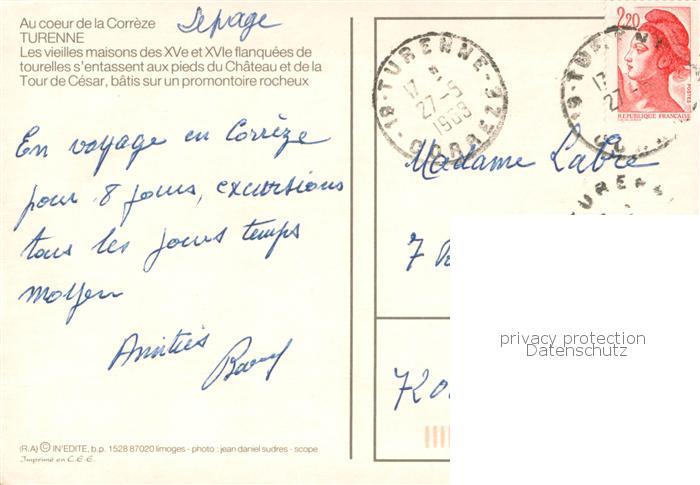 Au coeur de la Corrèze
TURENNE
Les vieilles maisons des XVe et XVIe flanquées de
tourelles s'entassent aux pieds du Château et de la
Tour de César, bâtis sur un promontoire rocheux
Lepage
En voyage en Corrèze
pour 8 jours, excursions
tous les jours temps
moyen
Amitiés
(R.A) © IN'EDITE, b.p. 1528 87020 limoges - photo : jean daniel sudres - scope
Imprimé en C.E.E.
TURENNE
17 H
27-5
19 CORREZE
2,20
POSTES
REPUBLIQUE FRANÇAISE
TURENNE
17
27-
19
TURENNE
Madame Labre
7
privacy protection
Datenschutz